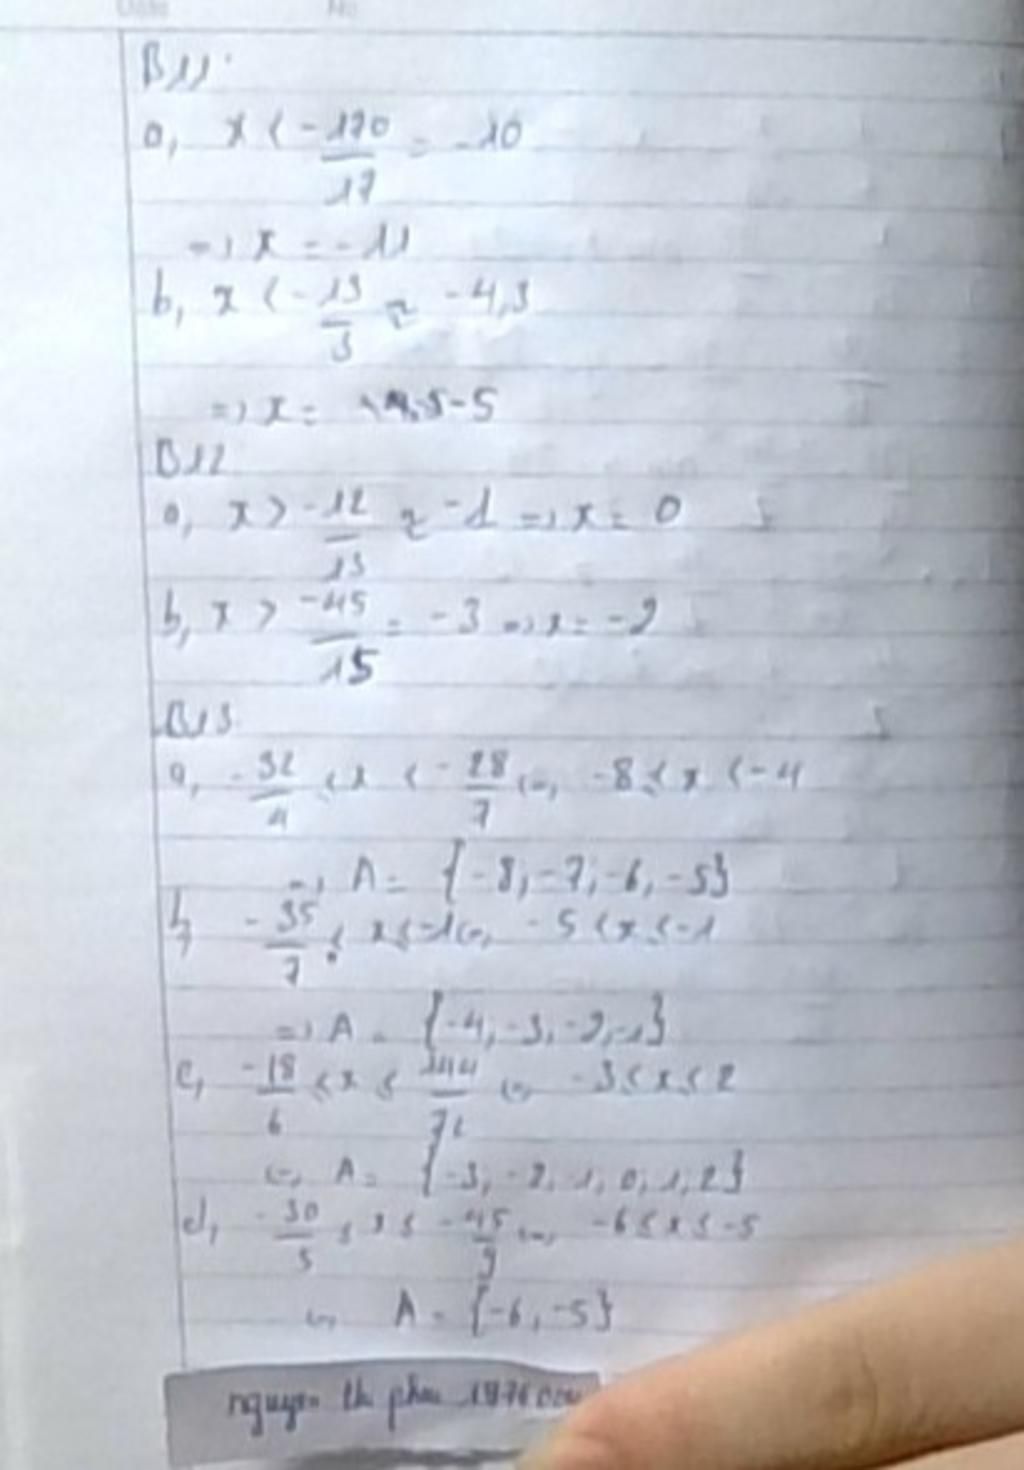 Date No
B11.
a, x < -170/17 = -10
=> x = -11
b, x < -13/3 ≈ -4,3
=> x = -5
B12
a, x > -12/13 ≈ -1 => x = 0
b, x > -45/15 = -3 => x = -2
B13
a, -32/4 ≤ x < -28/7 <=> -8 ≤ x < -4
=> A = {-8, -7, -6, -5}
b, -35/7 < x ≤ -1 <=> -5 < x ≤ -1
=> A = {-4, -3, -2, -1}
c, -18/6 ≤ x ≤ 144/72 <=> -3 ≤ x ≤ 2
<=> A = {-3, -2, -1, 0, 1, 2}
d, -30/5 ≤ x ≤ -45/9 <=> -6 ≤ x ≤ -5
<=> A = {-6, -5}
nguyen th